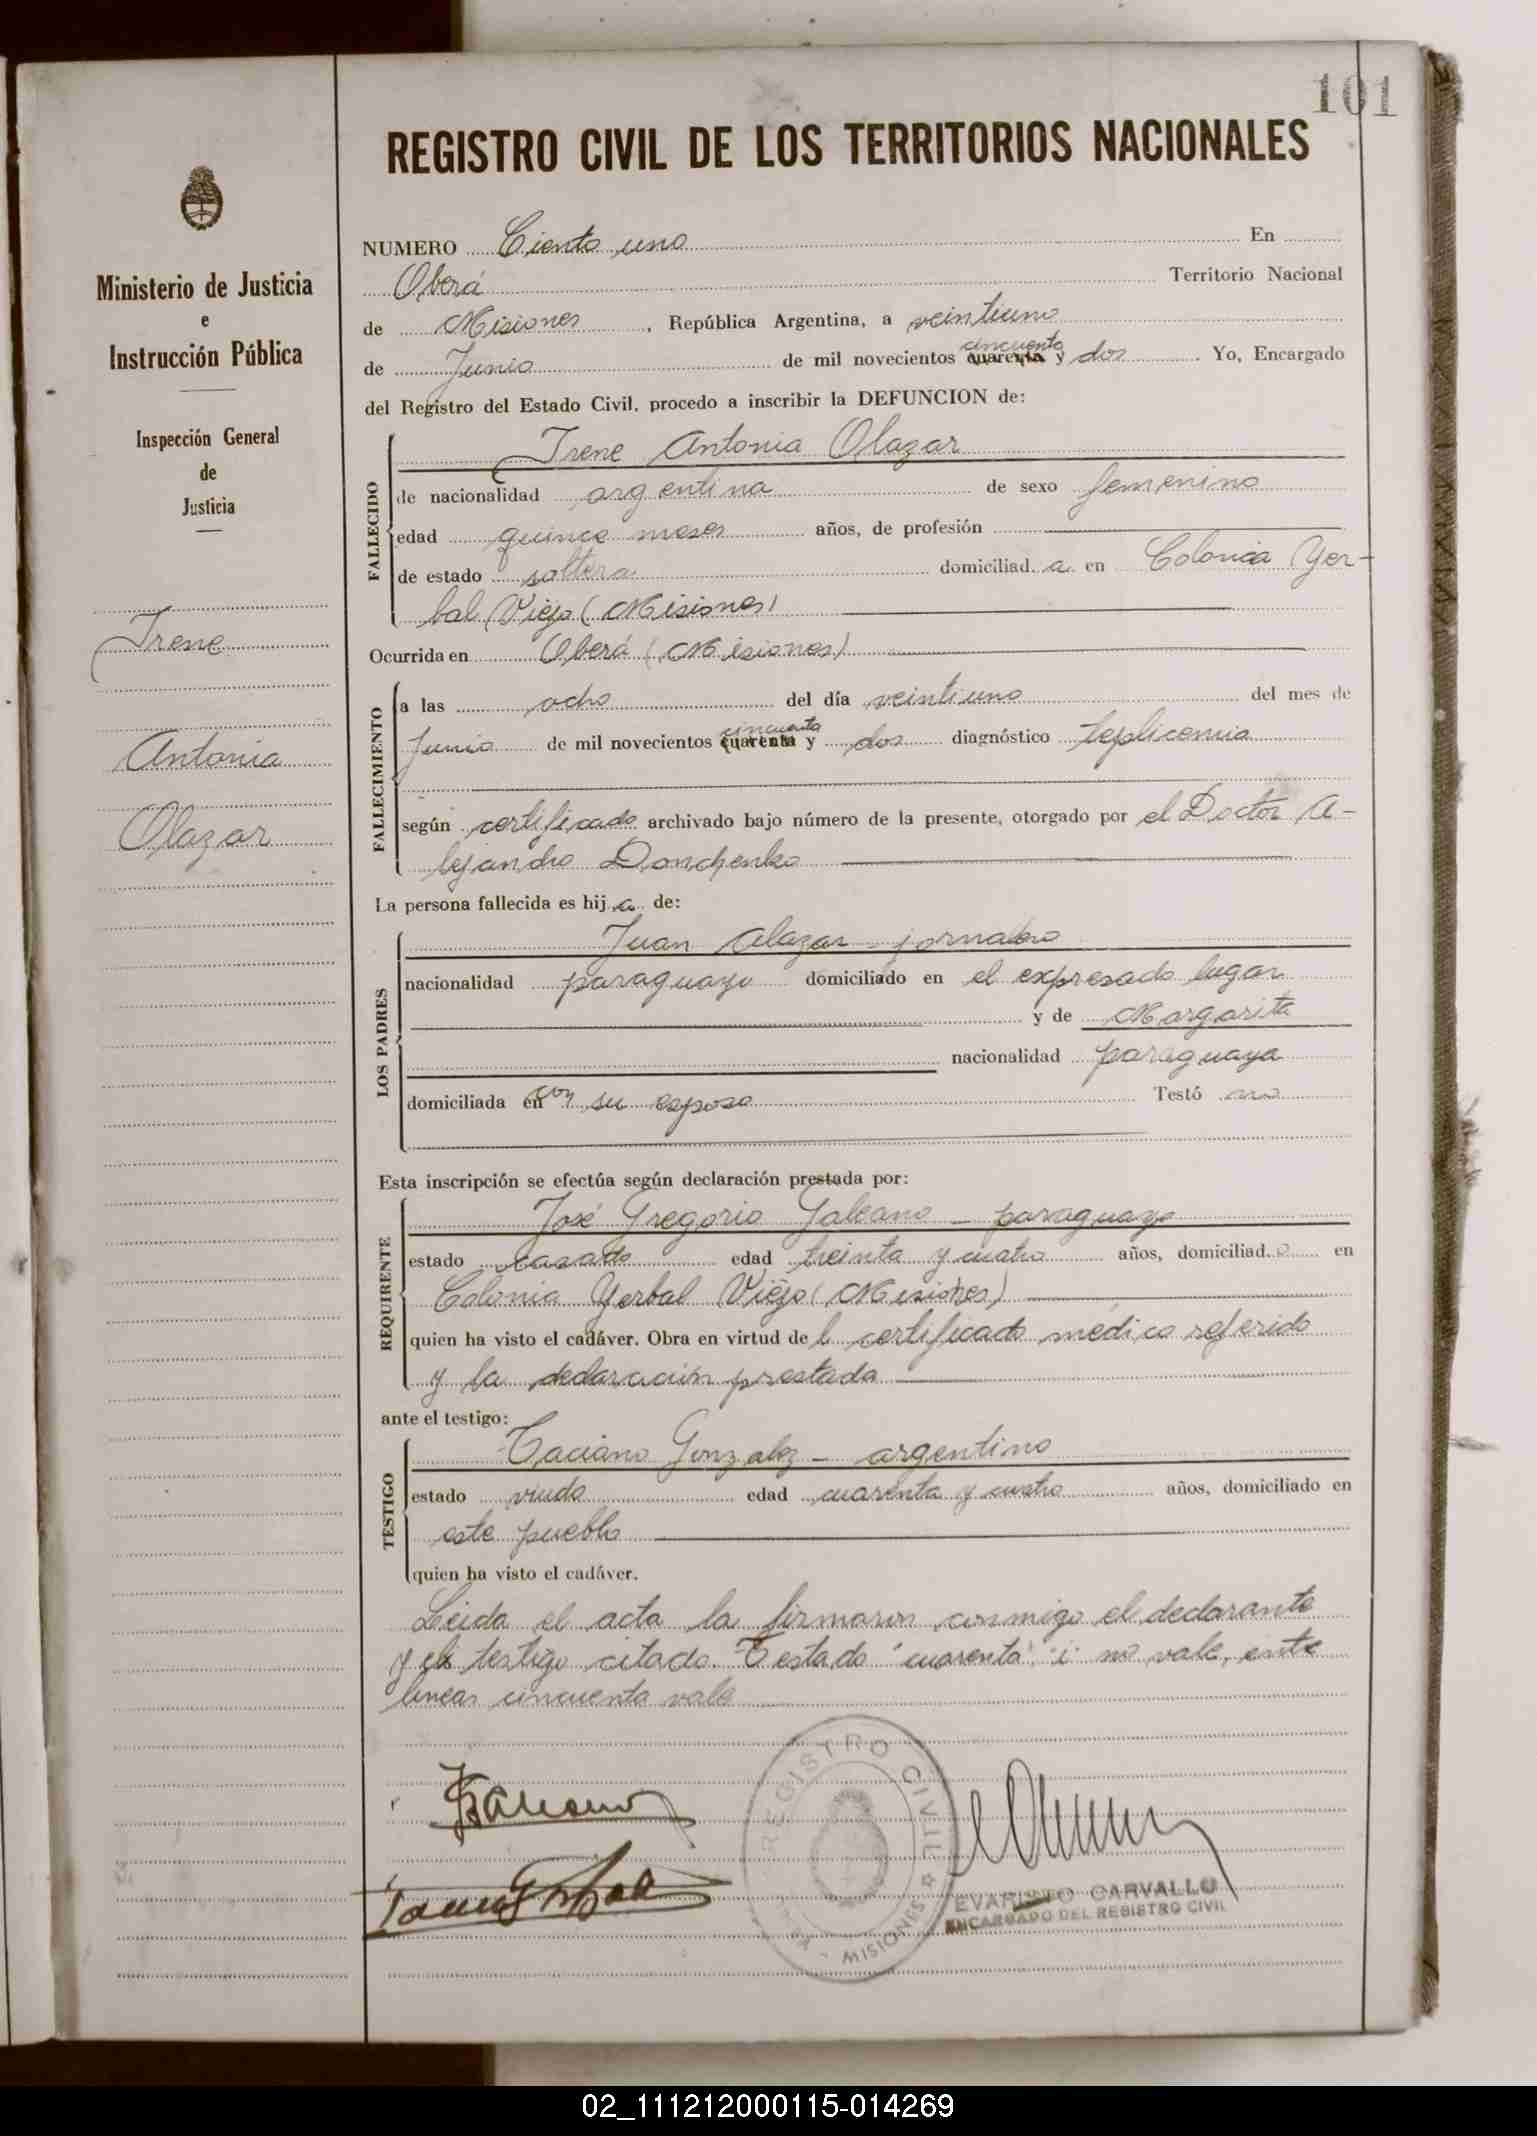 101
REGISTRO CIVIL DE LOS TERRITORIOS NACIONALES
Ministerio de Justicia
e
Instrucción Pública
Inspección General
de
Justicia
Irene
Antonia
Olazar
NUMERO Ciento uno En
Oberá Territorio Nacional
de Misiones, República Argentina, a veintiuno
de Junio de mil novecientos cuarenta cincuenta y dos. Yo, Encargado
del Registro del Estado Civil, procedo a inscribir la DEFUNCION de:
FALLECIDO
Irene Antonia Olazar
de nacionalidad argentina de sexo femenino
edad quince meses años, de profesión
de estado soltera domiciliad a en Colonia Yer-
bal Viejo (Misiones)
Ocurrida en Oberá (Misiones)
FALLECIMIENTO
a las ocho del día veintiuno del mes de
Junio de mil novecientos cuarenta cincuenta y dos diagnóstico
según certificado archivado bajo número de la presente, otorgado por el Doctor A-
lejandro Donchenko
La persona fallecida es hij a de:
LOS PADRES
Juan Olazar - jornalero
nacionalidad paraguayo domiciliado en el expresado lugar
y de Margarita
nacionalidad paraguaya
domiciliada en con su esposo Testó no
Esta inscripción se efectúa según declaración prestada por:
REQUIRENTE
José Gregorio Galeano - paraguayo
estado casado edad treinta y cuatro años, domiciliad o en
Colonia Yerbal Viejo (Misiones)
quien ha visto el cadáver. Obra en virtud de l certificado médico referido
y la declaración prestada
ante el testigo:
TESTIGO
Taciano Gonzalez - argentino
estado viudo edad cuarenta y cuatro años, domiciliado en
este pueblo
quien ha visto el cadáver.
Leida el acta la firmaron conmigo el declarante
y el testigo citado. Testado "cuarenta" i no vale, entre
lineas cincuenta vale
REGISTRO CIVIL
MISIONES
EVARISTO CARVALLO
ENCARGADO DEL REGISTRO CIVIL
02_111212000115-014269